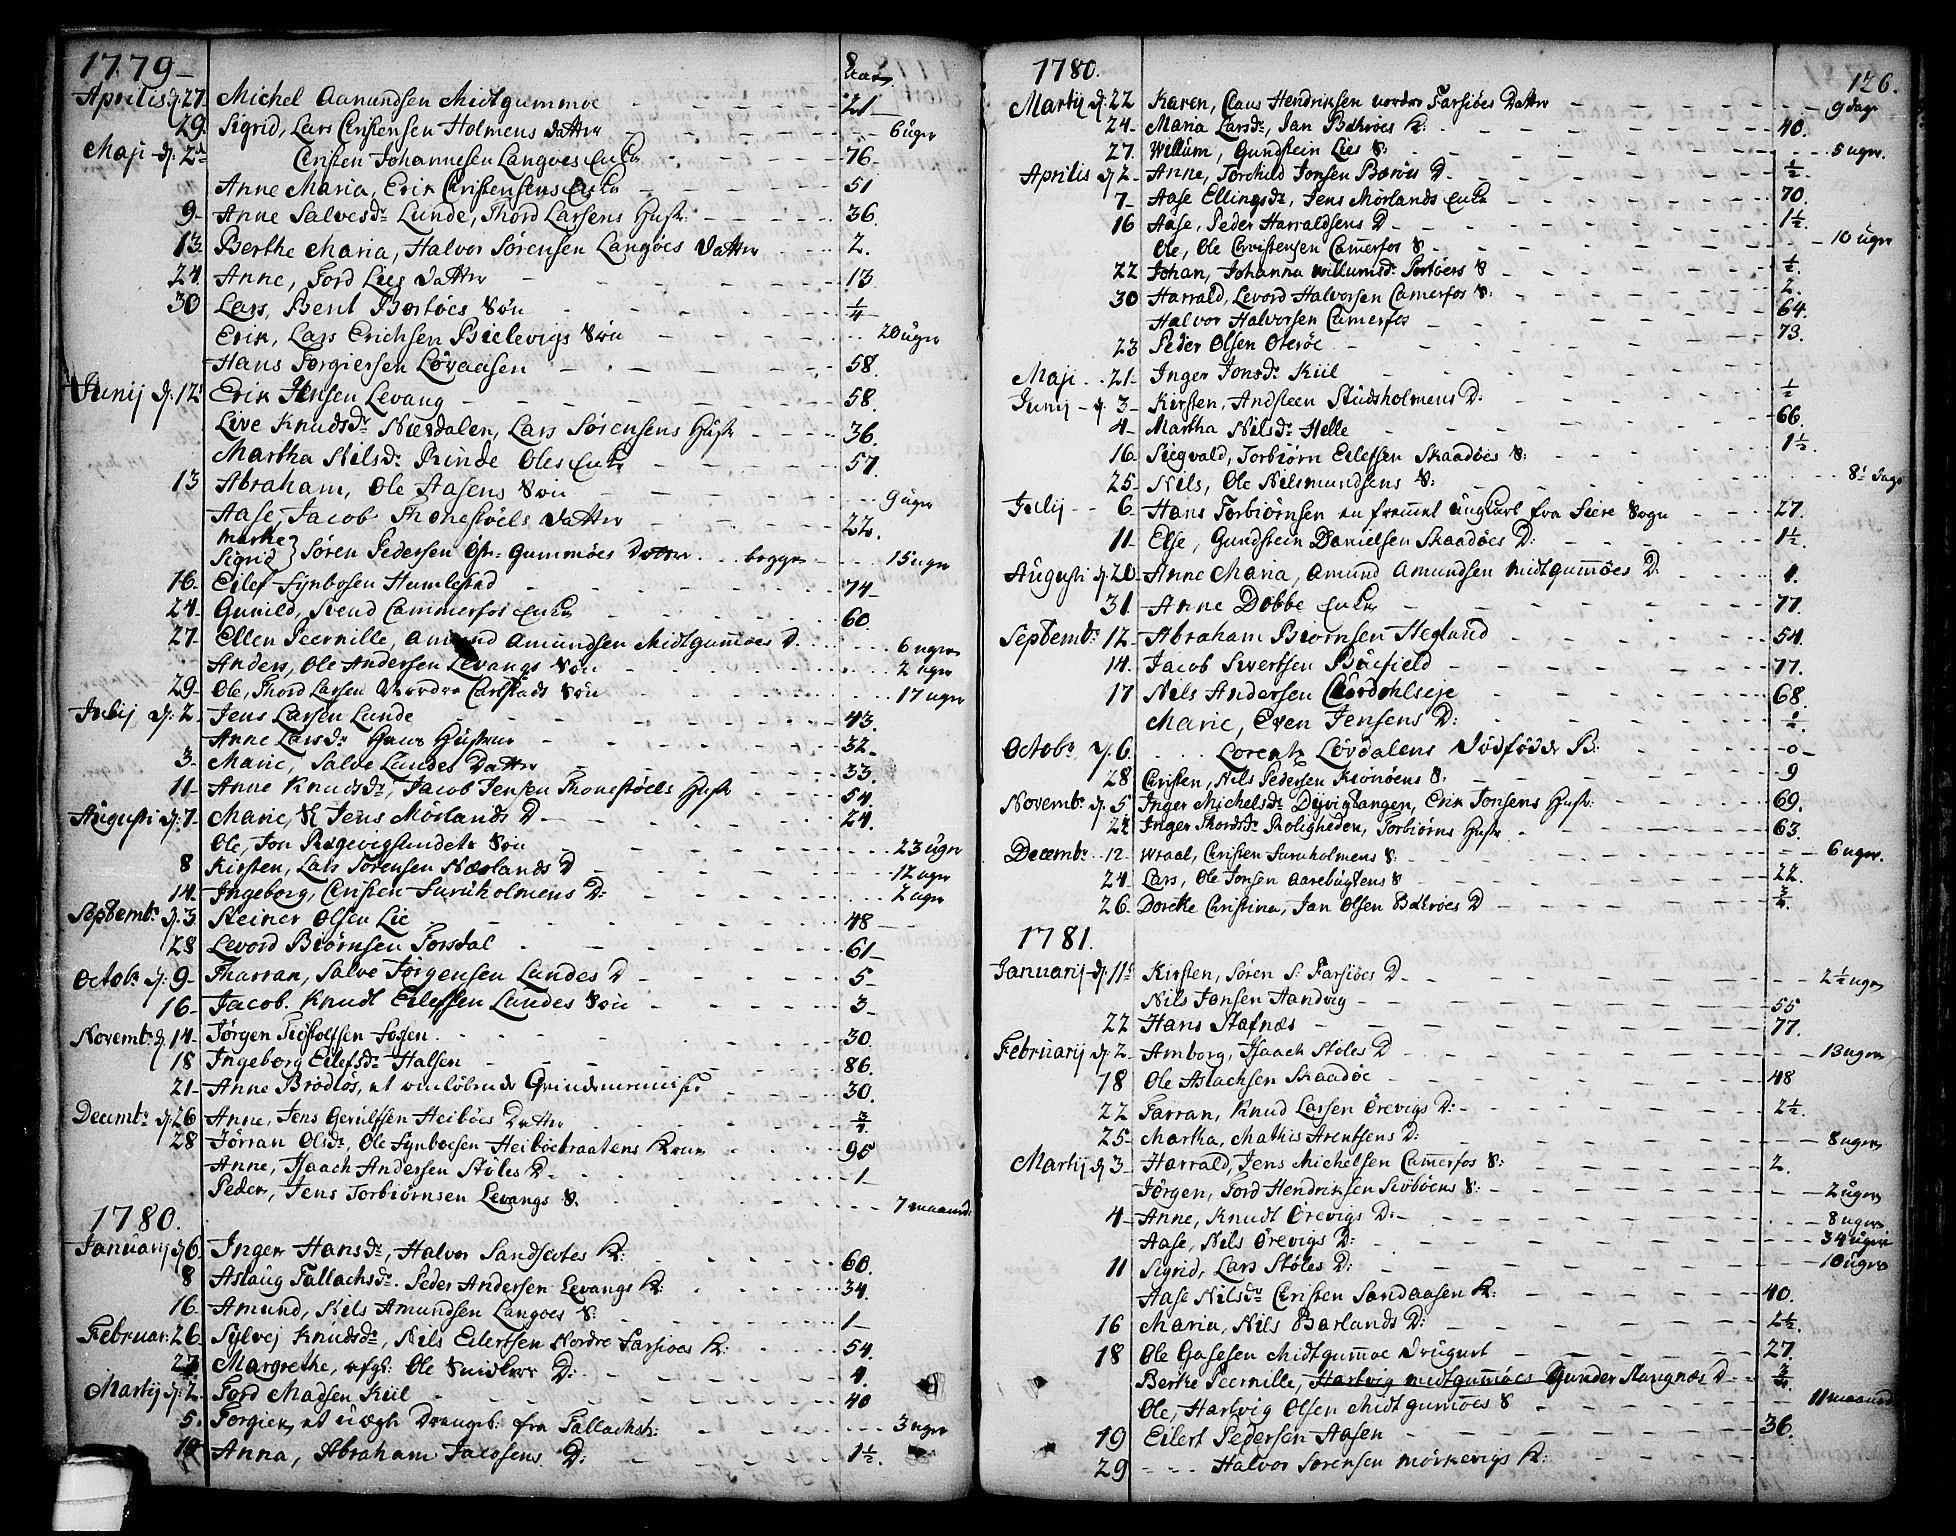 1779 Aar
Aprilis d: 27 Michel Aamundsen Midtgummoe 21
29. Sigrid, Lars Cristensen Holmens datter 6 uger
Maji d: 2 Cristen Johannesen Langoes Enke 76
Anne Maria, Erik Cristensens Enke 51
9 Anne Salvesdr Lunde, Thord Larsens Hustr 36.
13. Berthe Maria, Halvor Sørensen Langöes datter 2.
24. Anne, Tord Lies datter 13
30 Lars, Bent Bertöes Søn 1/4
Erik, Lars Erichsen Bielevigs Søn 20 uger
Hans Torgiersen Løvaasen 58.
Junij d: 12 Erik Jensen Levang 58.
Live Knudsdr Næsdalen, Lars Sörensens Hustr 36.
Martha Nilsdr Rinde Oles Enke 57.
13 Abraham, Ole Aasens Søn 9 uger
Aase, Jacob Thonestöels datter 22.
Marthe
Sigrid } Søren Pedersen Östr Gummöes Dottrer begge 15 uger
16. Eilef Tynbosen Humlestad 74
24. Gunild, Svend Cammerfos Enke 60.
27. Ellen Peernille, Amund Amundsen Midtgumöes D. 6 uger
Anders, Ole Andersen Levangs Søn 2 uger
29 Ole, Thord Larsen Nordre Carlstads Søn 17 uger
Julij d: 2 Jens Larsen Lunde 43.
Anne Larsdr Hans Hustrue 32
3. Marie, Salve Lundes Datter 33.
11 Anne Knudsdr, Jacob Jensen Thonestöels Hustr 54.
Augusti d: 7 Marie, Jens Mörlands D 24.
Ole, Jon Rigevigsundets Søn 23 uger
8 Kirsten, Lars Sørensen Næslands D 12 uger
14. Ingeborg, Cristen Furuholmens D: 2 uger
Septembr d: 3 Steiner Olsen Lie 48
28 Levord Biörnsen Torsdal 61
Octobr d: 9 Tharran, Salve Jörgensen Lundes D 5
16 Jacob. Knudt Eilefsen Lundes Søn 3
Novembr d: 14 Jörgen Tiøstolfsen Fossen 30.
18 Ingeborg Eilefsdr Halsen 86.
21 Anne Brødløs, et omløbende Qvindemenniske 30.
Decembr d: 26 Anne, Jens Geruldsen Heiböes Datter 3/4
28 Jörran Olsdr, Ole Tynbosen Heiböebraatens Kone 95
Anne, Isaach Andersen Stöles D 1
Peder, Jens Torbiörnsen Levangs S. 7 maaned:
1780.
Januarij d 6 Inger Hansdr, Halvor Sandsletes K: 60.
8 Aslaug Tallachsdr. Peder Andersen Levangs K: 34.
16. Amund, Nils Amundsen Langoes S: 1
Februar: 26 Sylvej Knudsdr, Nils Eilertsen Nordre Farsioes K: 54.
27 Margrethe, afg: Ole Snidkers D: 4.
Martij d: 2 Tord Madsen Kiil 40
5. Torgier, et uægte Drengeb: fra Tallachsh: 3 uger
19 Anna, Abraham Jacobsens D: 1½.
1780. 126.
Martij d 22 Karen, Claus Hendriksen nordre Farsiöes Datter 9 dage
24 Maria Larsdr, Jan Bærøes K: 40.
27. Willum, Gundstein Lies S: 5 uger.
Aprilis d 2 Anne, Torchild Jonsen Bærøes D ½.
7 Aase Ellingsdr, Jens Mörlands Enke 70.
16 Aase, Peder Harraldsens D 1½.
Ole, Ole Christensen Camerfos S 10 uger
22 Johan, Johanna Willumsdr Portøers S ½.
30 Harrald, Levord Halvorsen Camerfos S: 2.
Halvor Halvorsen Camerfos 64.
23 Peder Olsen Oteröe 73.
Maji 21 Inger Jonsdr Kiil
Junij d 3 Kirsten, Andsteen Studsholmens D: ½
4 Martha Nilsdr Helle 66.
16. Siegvald, Torbiörn Eilefsen Skaadöes S: 1½.
25 Nils, Ole Nilsmundsens S: 8 dage
Julij 6. Hans Torbiörnsen en fremmet ungkarl fra Siere Sogn 27.
11 Else, Gundstein Danielsen Skaadöes D: 1½.
Augusti d: 20 Anne Maria, Amund Amundsen midtgumöes D: 4.
31. Anne Dobbe Enke 77.
Septembr: 12 Abraham Biörnsen Hegland 54.
14. Jacob Sivertsen Büefield 77.
17 Nils Andersen 68.
Marie, Even Jensens D: ½
Octobr d. 6. Lorentz Lövdalens dødfødde B: 0
28 Cristen, Nils Pedersen Kronöens S: 9
Novembr d: 5 Inger Michelsdr Dyvigtangen, Erik Jonsens Hustr: 69.
24 Inger Thordsdr Roligheden, Torbiörns Hustr. 63.
Decembr 12. Wraal, Cristen Furuholmens S: 6 uger.
24. Lars, Ole Jonsen Aarebugtens S 22.
26 Dorethe Christina, Jan Olsen Bærøes D 3/4.
1781.
Januarij d: 11 Kirsten, Søren S: Farsiöes D 2½ uger
Nils Jansen Aandvig 55
22 Hans Stafnæs 77.
Februarij d: 2 Amborg, Isaach Støles D 13 uger
18 Ole Aslachsen Skaadöe 48
22 Tarran, Knud Larsen Örevigs D: 2½.
25 Martha, Mathis Arentsens D: 8 uger
Martij d 3 Harrald, Jens Michelsen Camerfos S: 2.
Jørgen, Tord Hendriksen Siöböens S: 2 uger
4 Anne, Knudt Örevigs D: 8 uger
Aase, Nils Örevigs D: 34 uger
11 Sigrid, Lars Støles D: 10 uger
Aase Nilsdr Cristen Sandaasen K: 40.
16 Maria, Nils Barlands D: 2½.
18 Ole Gasesen Midtgumoe Drugurt 27.
Berthe Peernille, Hartvig midtgumöes Gunder Stangnæs D 3/4.
Ole, Hartvig Olsen Midtgumöes S 11 maaned
19 Eilert Pedersen Aasen 36.
29 Halvor Sörensen Mörkevigs K: